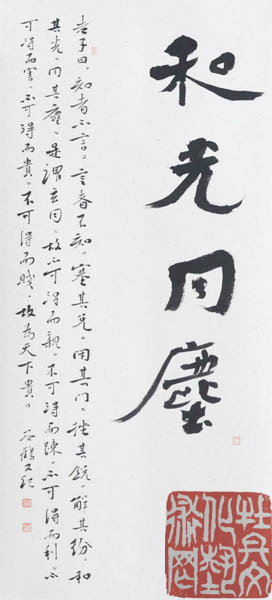 和光同塵
老子曰。知者不言。言者不知。塞其兌。閉其門。挫其銳。解其紛。和
其光。同其塵。是謂玄同。故不可得而親。不可得而疎。不可得而利。不
可得而害。不可得而貴。不可得而賤。故為天下貴。石鶴